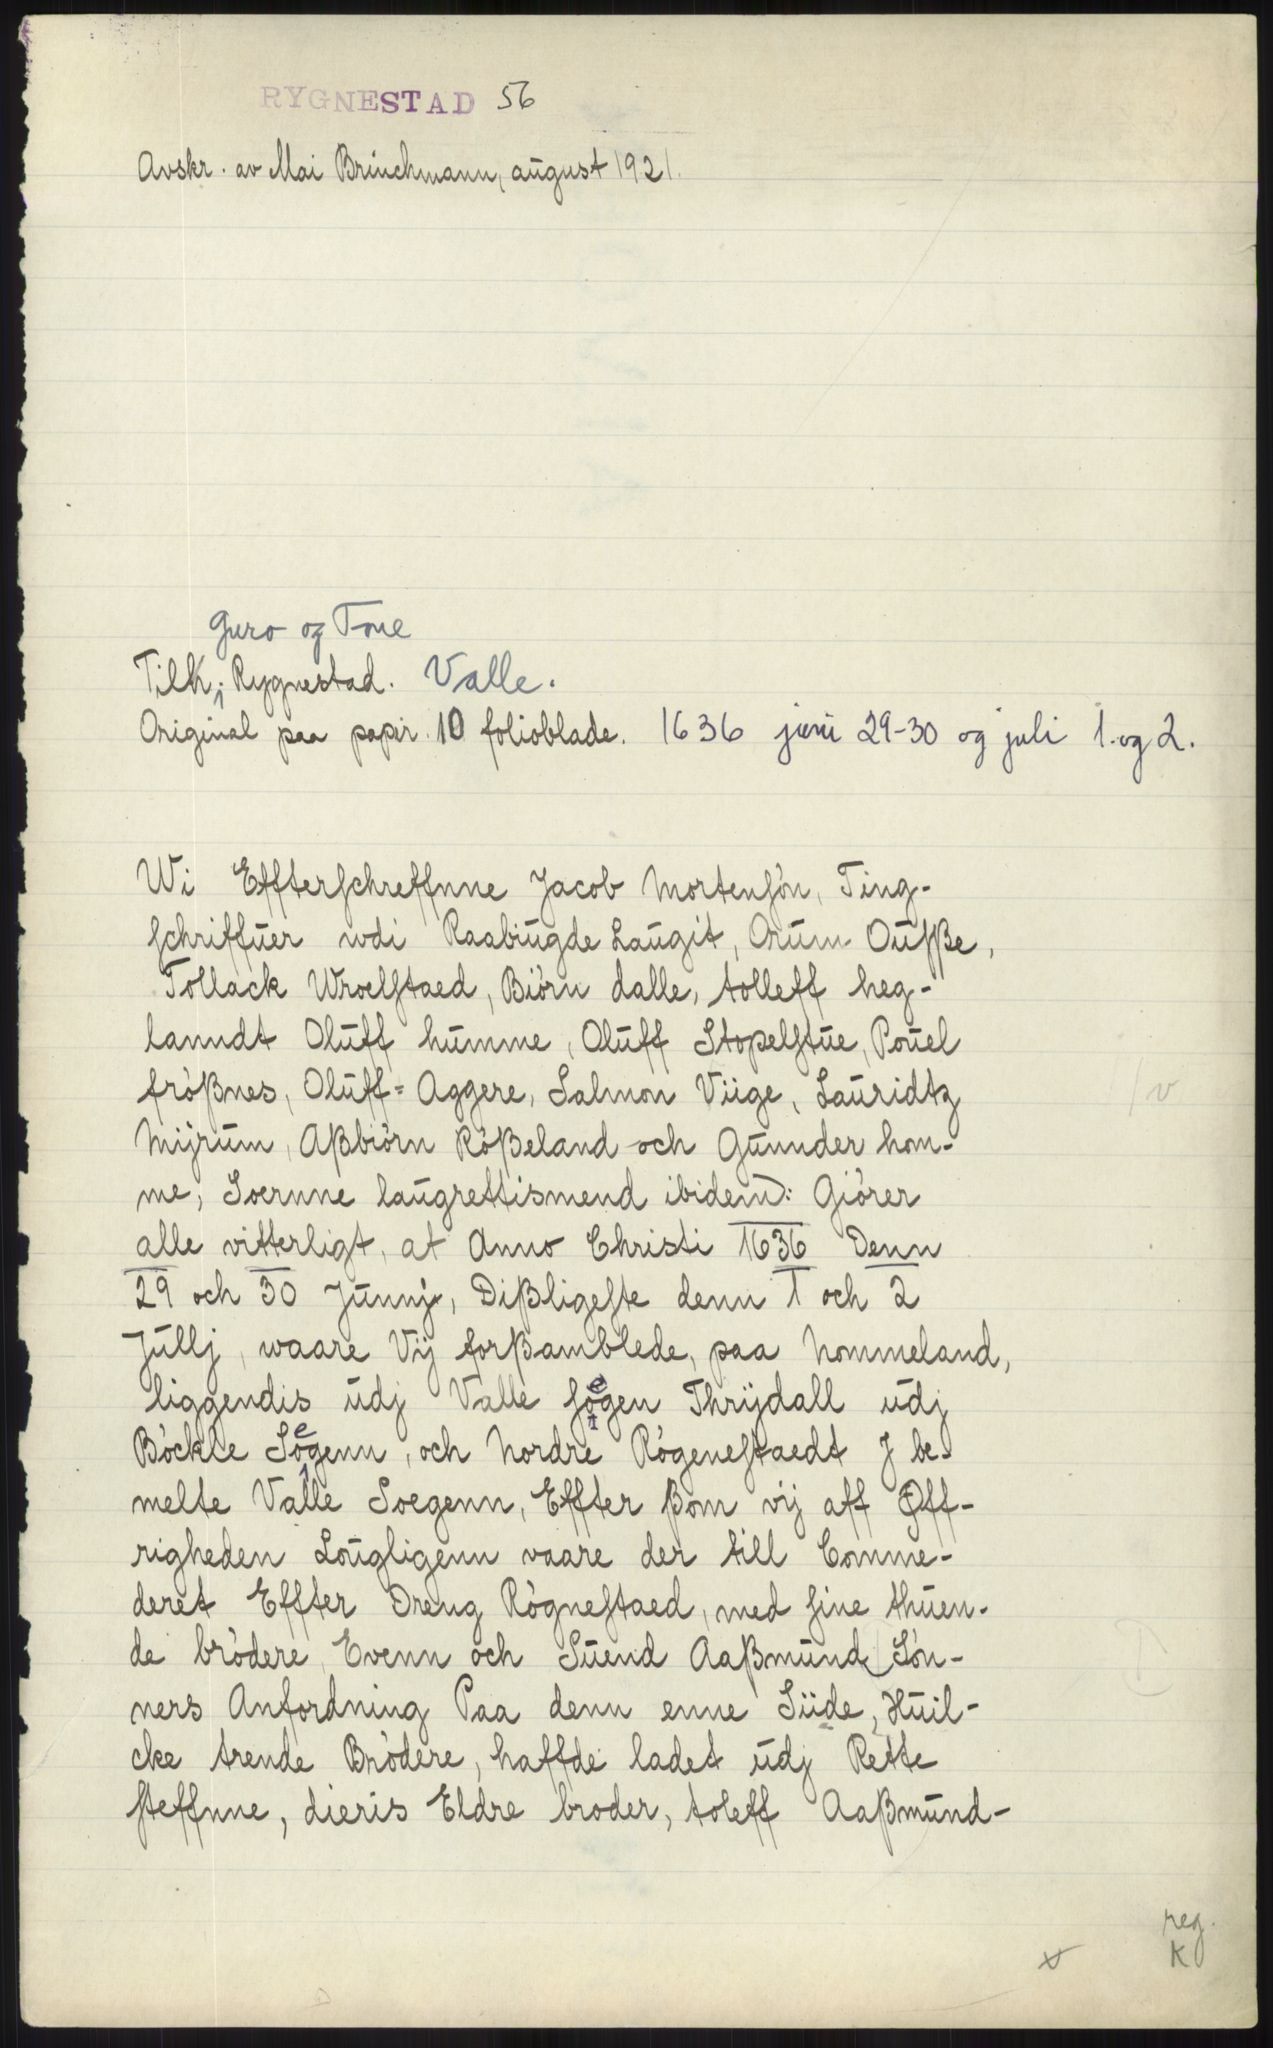 RYGNESTAD 56
Avskr. av Mai Brinchmann, august 1921.
Guro og Tone
Tilh. Rygnestad. Valle.
Original paa papir. 10 folioblade. 1636 juni 29-30 og juli 1. og 2.
Wi Effterschreffnne Jacob Mortensön, Ting-
schriffuer wdi Raabiugde Laugit, Orum Ousße,
Tollack Wroelstaed, Biörn dalle, tolleff heg-
lanndt Oluff humme, Oluff Stopelstue, Pouel
frößnes, Oluff= Aggere, Salmon Viige, Lauridtz
Mijrum, Aßbiörn Rößeland och Gunnder hom-
me, Soernne laugrettismend ibidem: Giörer
alle vitterligt, at Anno Christi 1636 Denn
29 och 30 Junnj, Dißligeste denn 1 och 2
Jullj, waare Vij forßamblede, paa Nommeland,
liggendis udj Valle soegen Thrijdall udj
Böckle Soegenn, och Nordre Rögenestaedt J be-
melte Valle Soegenn, Effter ßom vij aff Øff-
righeden Lougligenn vaare der till Comme-
deret Effter Dreng Rögnestaed, med sine thuen-
de brödere Evenn och Suend Aaßmund Sön-
ners Anfordning Paa denn enne Siide, Huil-
cke trende Brödere, haffde ladet udj Rette
steffnne, dieris Eldre broder, toleff Aaßmund-
/v
reg.
v K